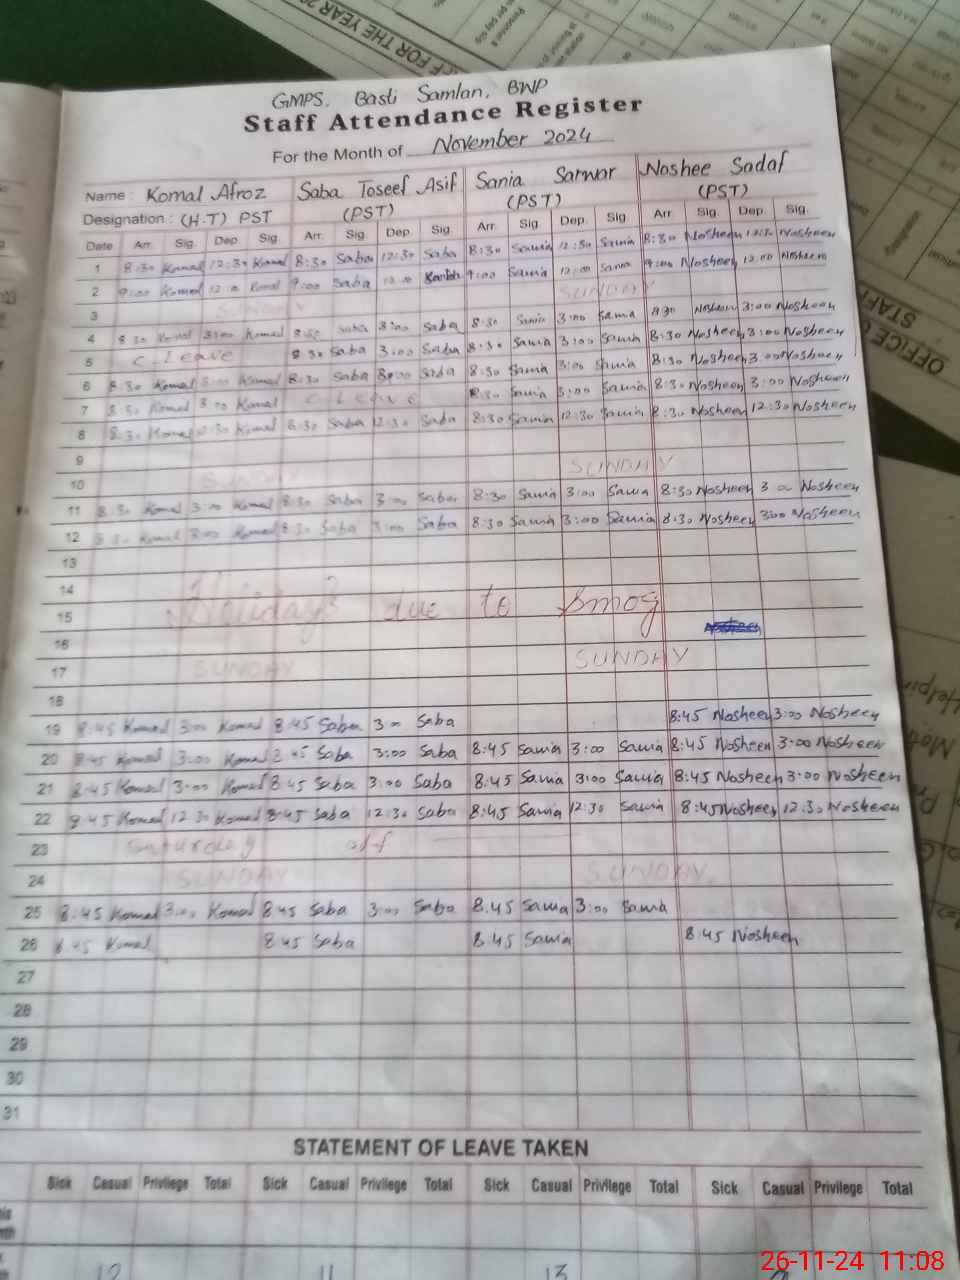 FF FOR THE YEAR 20
OFFICE O
STAFF
GMPS. Basti Samlan, BWP
Staff Attendance Register
For the Month of November 2024
Name : Komal Afroz Saba Toseef Asif Sania Sarwar Noshee Sadaf
Designation : (H.T) PST (PST) (PST) (PST)
Date Arr. Sig. Dep. Sig. Arr. Sig. Dep. Sig. Arr. Sig. Dep. Sig. Arr. Sig. Dep. Sig.
1 8:30 Komal 12:30 Komal 8:30 Saba 12:30 Saba 8:30 Sania 12:30 Sania 8:30 Nosheen 12:30 Nosheen
2 9:00 Komal 12:00 Komal 9:00 Saba 12:00 9:00 Sania 12:00 Sania 9:00 Nosheen 12:00 Nosheen
3 SUNDAY SUNDAY
4 8:30 Komal 3:00 Komal 8:30 Saba 3:00 Saba 8:30 Sania 3:00 Sania 8:30 Nosheen 3:00 Nosheen
5 C. Leave 8:30 Saba 3:00 Saba 8:30 Sania 3:00 Sania 8:30 Nosheen 3:00 Nosheen
6 8:30 Komal 3:00 Komal 8:30 Saba 3:00 Saba 8:30 Sania 3:00 Sania 8:30 Nosheen 3:00 Nosheen
7 8:30 Komal 3:00 Komal C Leave 8:30 Sania 3:00 Sania 8:30 Nosheen 3:00 Nosheen
8 8:30 Komal 12:30 Komal 8:30 Saba 12:30 Saba 8:30 Sania 12:30 Sania 8:30 Nosheen 12:30 Nosheen
9
10 SUNDAY SUNDAY
11 8:30 Komal 3:00 Komal 8:30 Saba 3:00 Saba 8:30 Sania 3:00 Sania 8:30 Nosheen 3:00 Nosheen
12 8:30 Komal 3:00 Komal 8:30 Saba 3:00 Saba 8:30 Sania 3:00 Sania 8:30 Nosheen 3:00 Nosheen
13
14
15 Holidays due to Smog
16
17 SUNDAY SUNDAY
18
19 8:45 Komal 3:00 Komal 8:45 Saba 3:00 Saba 8:45 Nosheen 3:00 Nosheen
20 8:45 Komal 3:00 Komal 8:45 Saba 3:00 Saba 8:45 Sania 3:00 Sania 8:45 Nosheen 3:00 Nosheen
21 8:45 Komal 3:00 Komal 8:45 Saba 3:00 Saba 8:45 Sania 3:00 Sania 8:45 Nosheen 3:00 Nosheen
22 8:45 Komal 12:30 Komal 8:45 Saba 12:30 Saba 8:45 Sania 12:30 Sania 8:45 Nosheen 12:30 Nosheen
23 Saturday off
24 SUNDAY SUNDAY
25 8:45 Komal 3:00 Komal 8:45 Saba 3:00 Saba 8:45 Sania 3:00 Sania
26 8:45 Komal 8:45 Saba 8:45 Sania 8:45 Nosheen
27
28
29
30
31
STATEMENT OF LEAVE TAKEN
Sick Casual Privilege Total Sick Casual Privilege Total Sick Casual Privilege Total Sick Casual Privilege Total
12 11 13
26-11-24 11:08